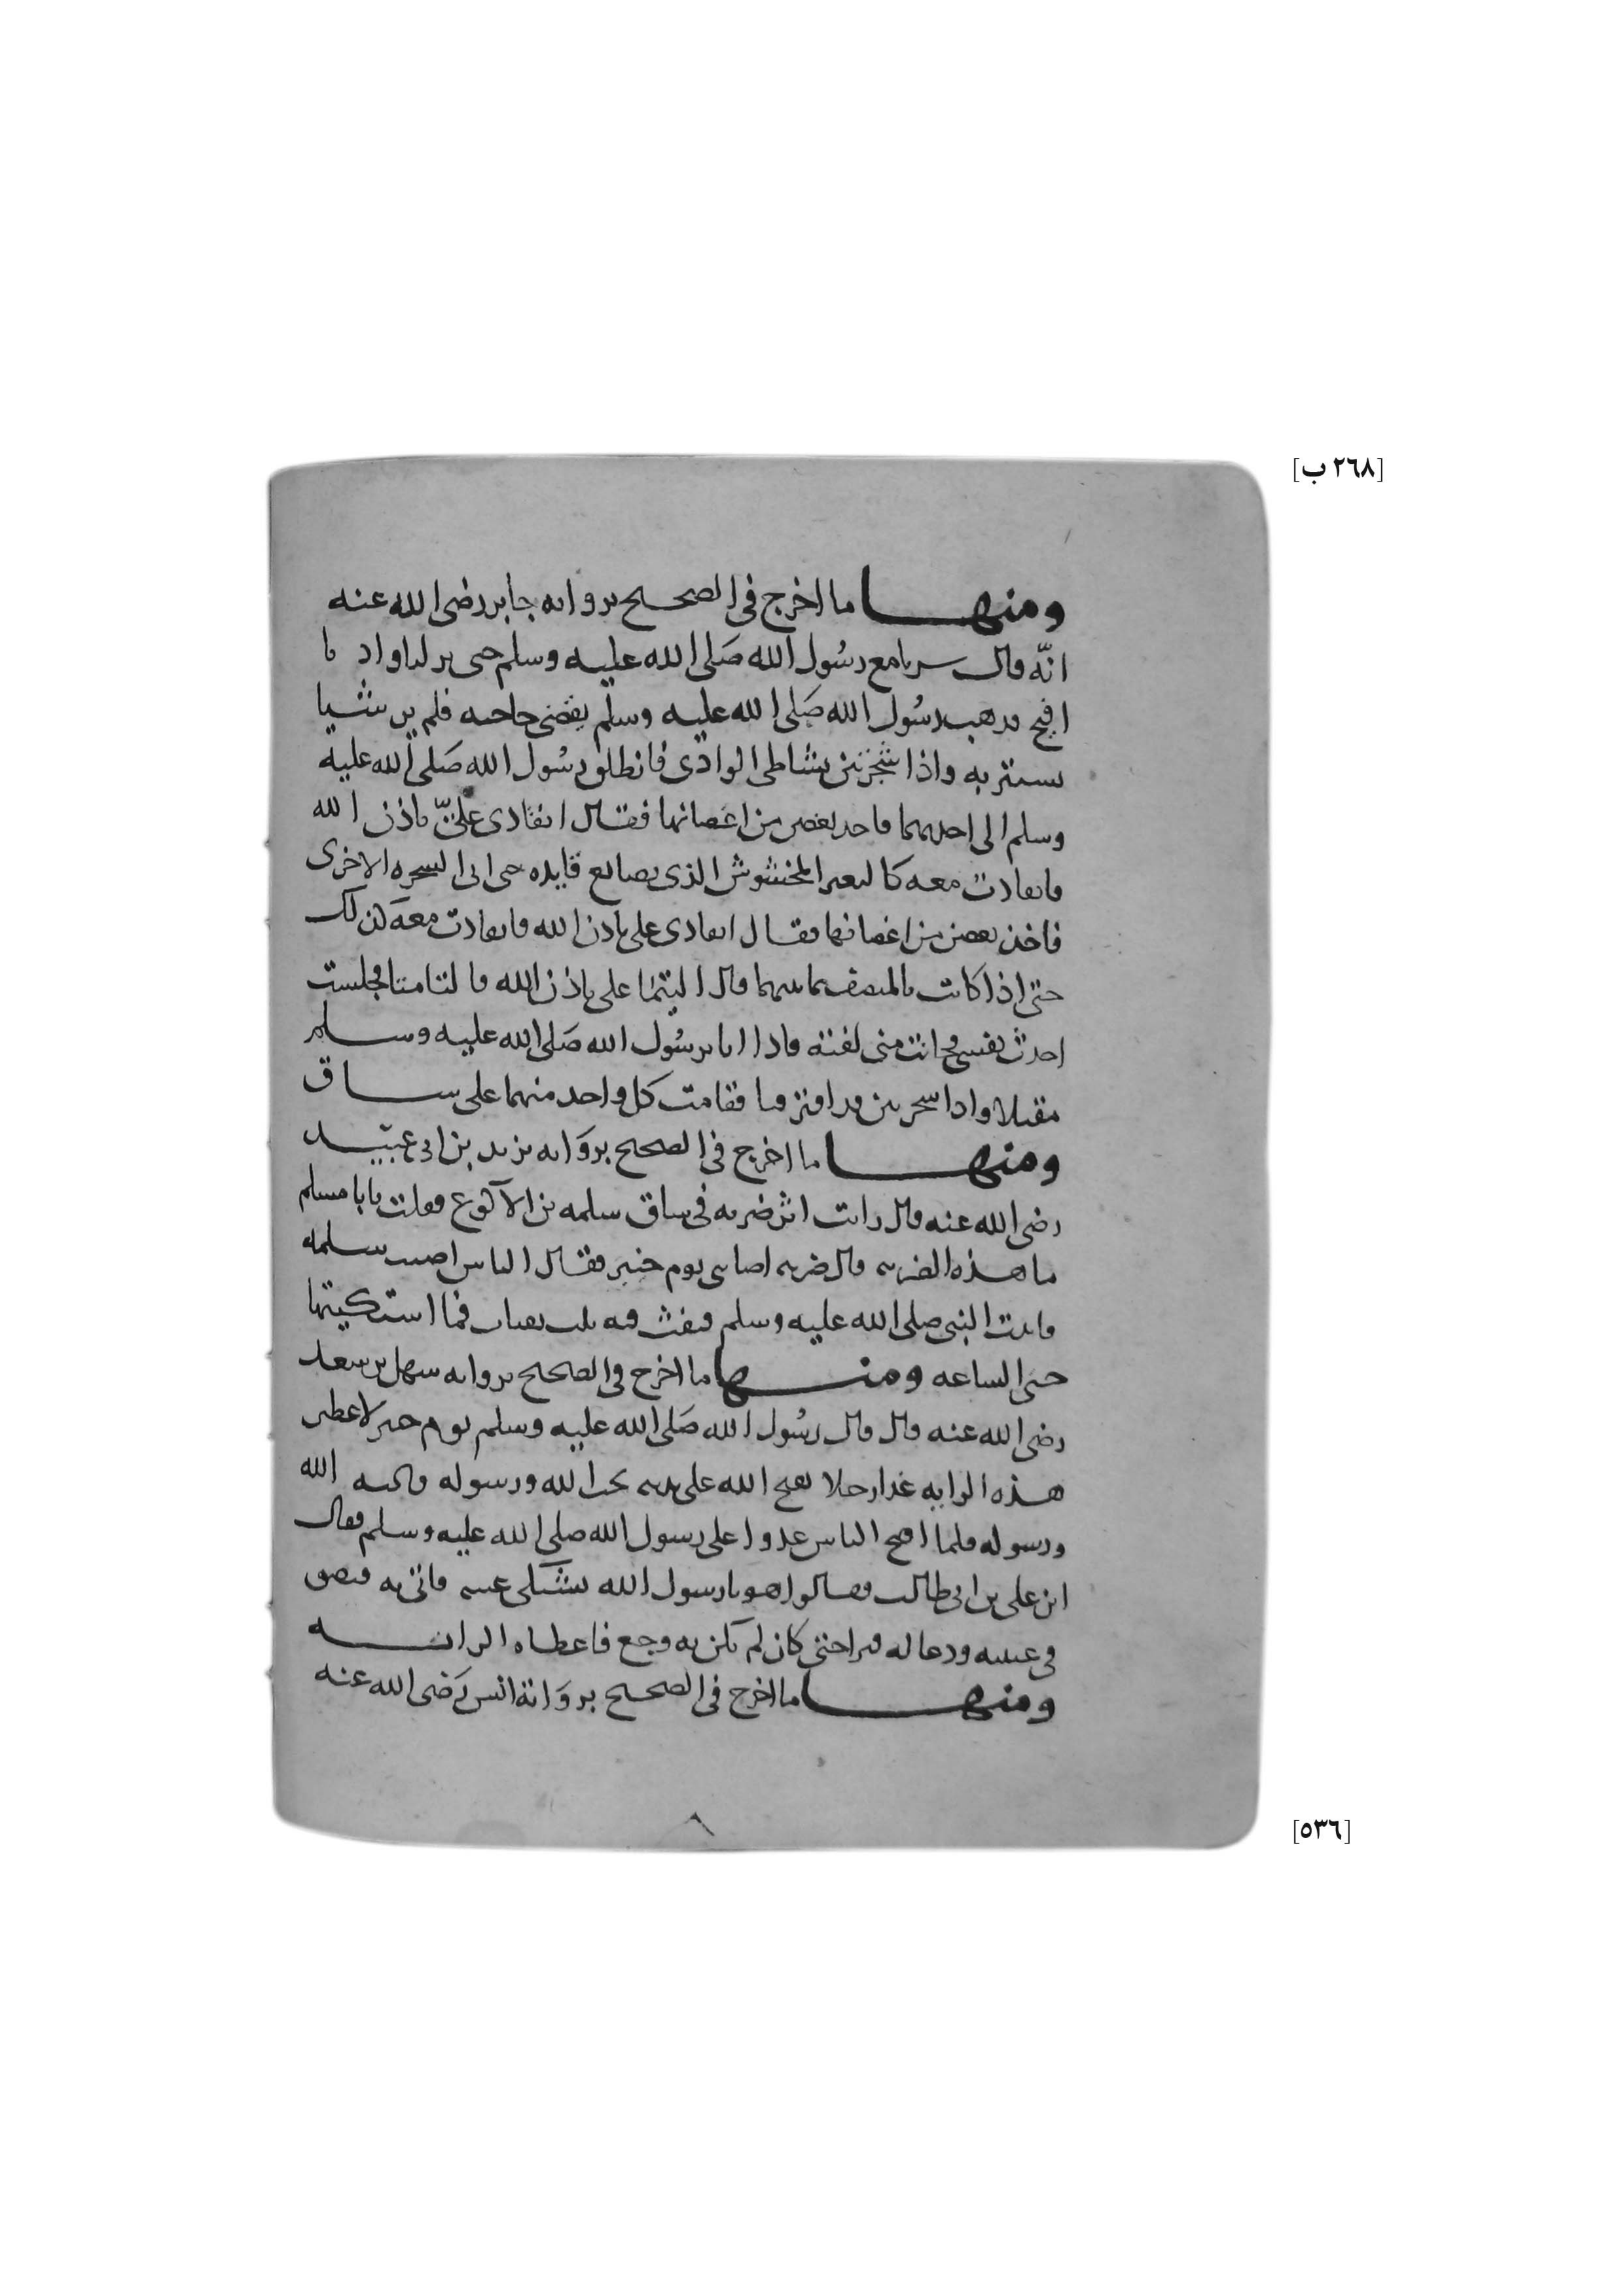 [٢٦٨ ب]
ومنها ما اخرج فى الصحيح بروايه جابر رضى الله عنه
انّه قال سرنا مع رسُول الله صَلى الله عليه وسلم حتى نزلنا واديا
افيح فذهب رسُول الله صَلى الله عليه وسلم يقضى حاجته فلم ير شيا
يستتر به واذا شجرتين بشاطى الوادى فانطلق رسُول الله صَلى الله عليه
وسلم الى احديهما فاخذ بغصن من اغصانها فقال انقادى علىّ باذن الله
فانقادت معه كالبعير المخشوش الذى يصانع قايده حتى اتى الشجره الاخرى
فاخذ بغصن من اغصانها فقال انقادى على باذن الله فانقادت معه كذلك
حتى اذا كانت بالمنصف مما بينهما قال التيما على باذن الله فالتامتا فجلست
احدث نفسى فحانت منى لفتة فاذا انا برسُول الله صَلى الله عليه وسلم
مقبلا واذا الشجرتين قد افترقتا فقامت كل واحد منهما على ساق
ومنها ما اخرج فى الصحيح بروَايه يزيد بن ابى عبيد
رضى الله عنه قال رايت اثر ضربه فى ساق سلمه بن الاكوع فقلت يا با مسلم
ما هذه الضربه قال ضربه اصابتنى يوم خيبر فقال الناس اصيب سلمه
فاتيت النبى صلى الله عليه وسلم فنفث فيه ثلث نفثات فما اشتكيتها
حتى الساعه ومنها ما اخرج فى الصحيح بروايه سهل بن سعد
رضى الله عنه قال قال رسُول الله صَلى الله عليه وسلم يوم خيبر لاعطين
هذه الرايه غدا رجلا يفتح الله على يديه يحب الله ورسوله ويحبه الله
ورسوله فلما اصبح الناس غدوا على رسول الله صلى الله عليه وسلم فقال
اين على بن ابى طالب فقالوا هو يا رسول الله يشتكى عينيه فاتى به فبصق
فى عينيه ودعا له فبرا حتى كان لم يكن به وجع فاعطاه الرايه
ومنها ما اخرج فى الصحيح بروَاية انس رَضى الله عنه
[٥٣٦]